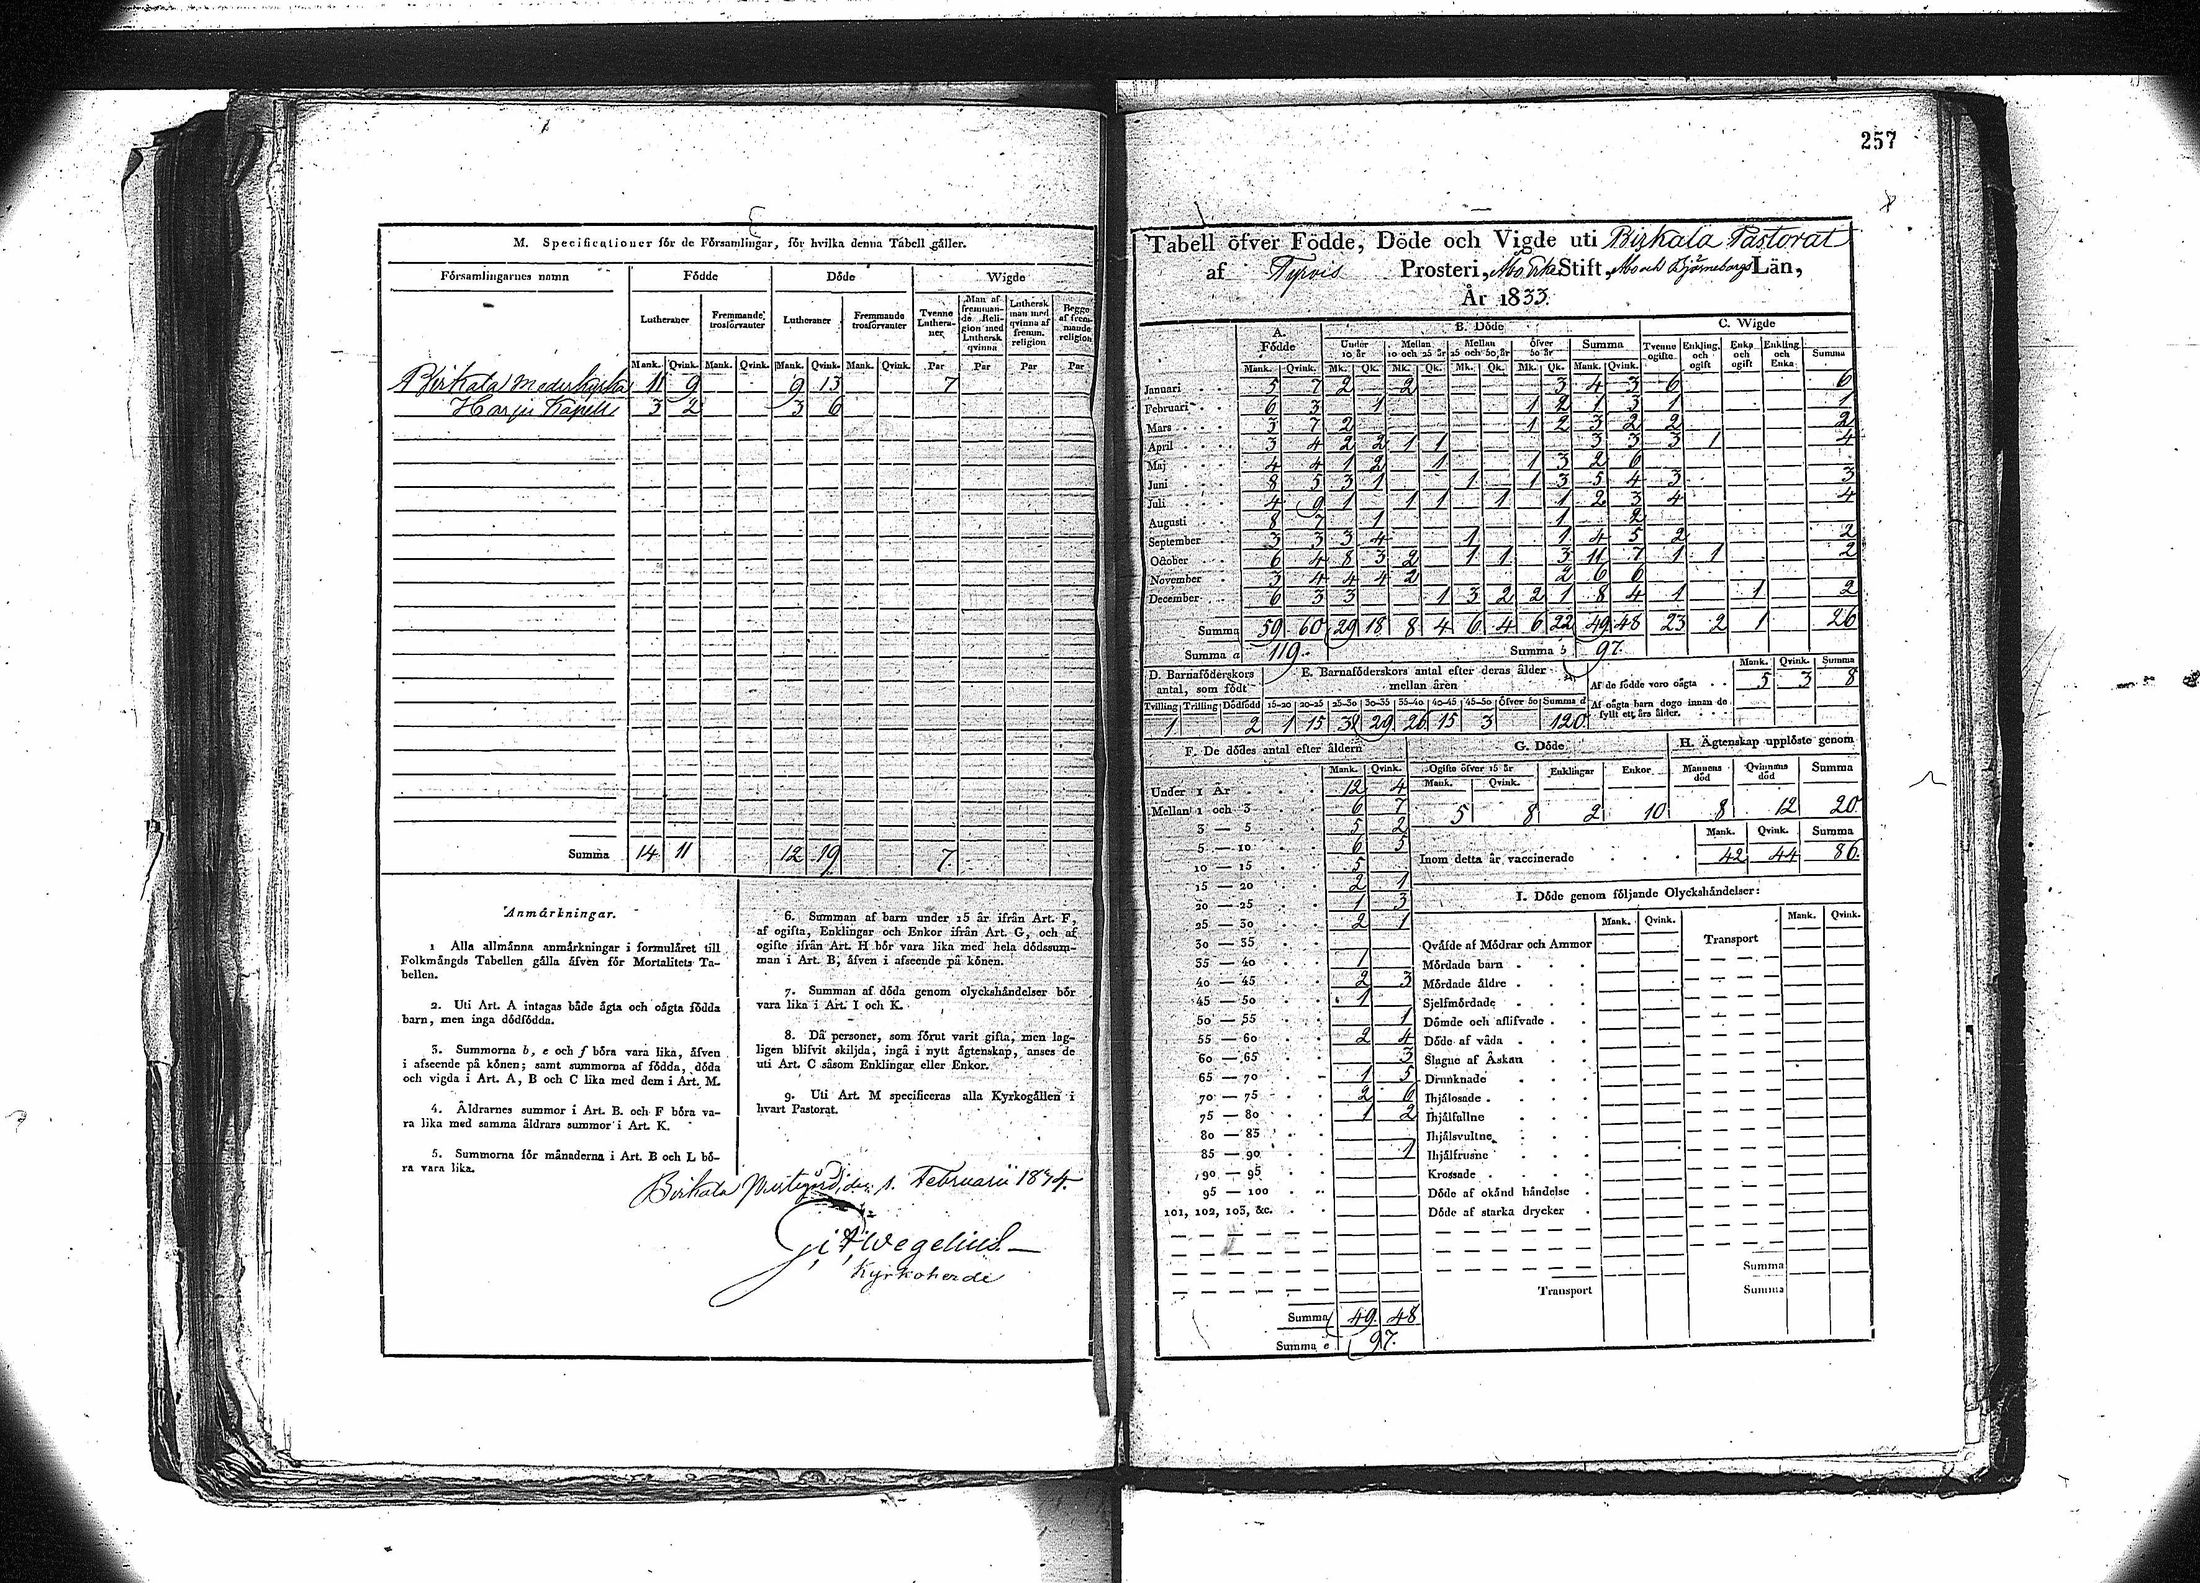 M. Specificationer för de Församlingar, för hvilka denna Tabell gäller.
Församlingarnes namn Födde Döde Wigde
Lutheraner Fremmande trosförvanter Lutheraner Fremmande trosförvanter Tvenne Lutheraner Man af fremmande Religion med Luthersk qvinna Luthersk man med qvinna af fremm. religion Begge af fremmande religion
Mank. Qvink. Mank. Qvink. Mank. Qvink. Mank. Qvink. Par Par Par Par
Birkala Moderkyrka 11 9 9 13 7
Harju Kapell 3 2 3 6
Summa 14 11 12 19 7
Anmärkningar.
1 Alla allmänna anmärkningar i formuläret till
Folkmängds Tabellen gälla äfven för Mortalitets Ta-
bellen.
2. Uti Art. A intagas både ägta och oägta födda
barn, men inga dödfödda.
3. Summorna b, e och f böra vara lika, äfven
i afseende på könen; samt summorna af födda, döda
och vigda i Art. A, B och C lika med dem i Art. M.
4. Äldrarnes summor i Art. B. och F böra va-
ra lika med samma åldrars summor i Art. K.
5. Summorna för månaderna i Art. B och L bö-
ra vara lika.
6. Summan af barn under 15 år ifrån Art. F,
af ogifta, Enklingar och Enkor ifrån Art. G, och af
ogifte ifrån Art. H bör vara lika med hela dödssum-
man i Art. B, äfven i afseende på könen.
7. Summan af döda genom olyckshändelser bör
vara lika i Art. I och K.
8. Då personer, som förut varit gifta, men lag-
ligen blifvit skiljda, ingå i nytt ägtenskap, anses de
uti Art. C såsom Enklingar eller Enkor.
9. Uti Art. M specificeras alla Kyrkogällen i
hvart Pastorat.
Birkala Prestegård, den 1. Februarii 1834.
Wegelius
Kyrkoherde
257
Tabell öfver Födde, Döde och Vigde uti Birkala Pastorat
af Tyrvis Prosteri, Åbo Erke Stift, Åbo och Björneborgs Län,
År 1833
A. Födde B. Döde C. Wigde
Under 10 år Mellan 10 och 25 år Mellan 25 och 50 år Öfver 50 år Summa Tvenne ogifte Enkling och ogift Enka och ogift Enkling och Enka Summa
Mank. Qvink. Mk. Qk. Mk. Qk. Mk. Qk. Mk. Qk. Mank. Qvink.
Januari 5 7 2 2 3 4 3 6 6
Februari 6 3 1 1 2 1 3 1 1
Mars 3 7 2 1 2 3 2 2 2
April 3 4 2 2 1 1 3 3 3 1 4
Maj 4 4 1 2 1 1 3 2 6
Juni 8 5 3 1 1 1 3 5 4 3 3
Juli 4 9 1 1 1 1 1 2 3 4 4
Augusti 8 7 1 1 2
September 3 3 3 4 1 1 4 5 2 2
October 6 4 8 3 2 1 1 3 11 7 1 1 2
November 3 4 4 4 2 2 6 6
December 6 3 3 1 3 2 2 1 8 4 1 1 2
Summa 59 60 29 18 8 4 6 4 6 22 49 48 23 2 1 26
Summa a 119. Summa b 97.
D. Barnaföderskors antal, som födt E. Barnaföderskors antal efter deras ålder mellan åren
Mank. Qvink. Summa
Af de födde voro oägta 5 3 8
Af oägta barn dogo innan de fyllt ett års ålder.
Tvilling Trilling Dödfödd 15-20 20-25 25-30 30-35 35-40 40-45 45-50 Öfver 50 Summa d
1 2 1 15 38 29 26 15 3 120.
F. De dödes antal efter åldern G. Döde H. Ägtenskap upplöste genom
Mank. Qvink. Ogifte öfver 15 år Enklingar Enkor Mannens död Qvinnans död Summa
Mank. Qvink.
5 8 2 10 8 12 20
Under 1 År 12 4
Mellan 1 och 3 6 7
3 — 5 5 2
5 — 10 6 5
10 — 15 5
15 — 20 2 1
20 — 25 1 3
25 — 30 2 1
30 — 35
35 — 40 1
40 — 45 2 3
45 — 50 1
50 — 55 1
55 — 60 2 4
60 — 65 3
65 — 70 1 5
70 — 75 2 6
75 — 80 1 2
80 — 85
85 — 90 1
90 — 95
95 — 100
101, 102, 103, &c.
Summa 49 48
Summa e 97.
Mank. Qvink. Summa
Inom detta år vaccinerade 42 44 86.
I. Döde genom följande Olyckshändelser:
Mank. Qvink. Mank. Qvink.
Qväfde af Mödrar och Ammor Transport
Mördade barn
Mördade äldre
Sjelfmördade
Dömde och aflifvade
Döde af våda
Slagne af Åskan
Drunknade
Ihjälosade
Ihjälfallne
Ihjälsvultne
Ihjälfrusne
Krossade
Döde af okänd händelse
Döde af starka drycker
Summa
Transport Summa